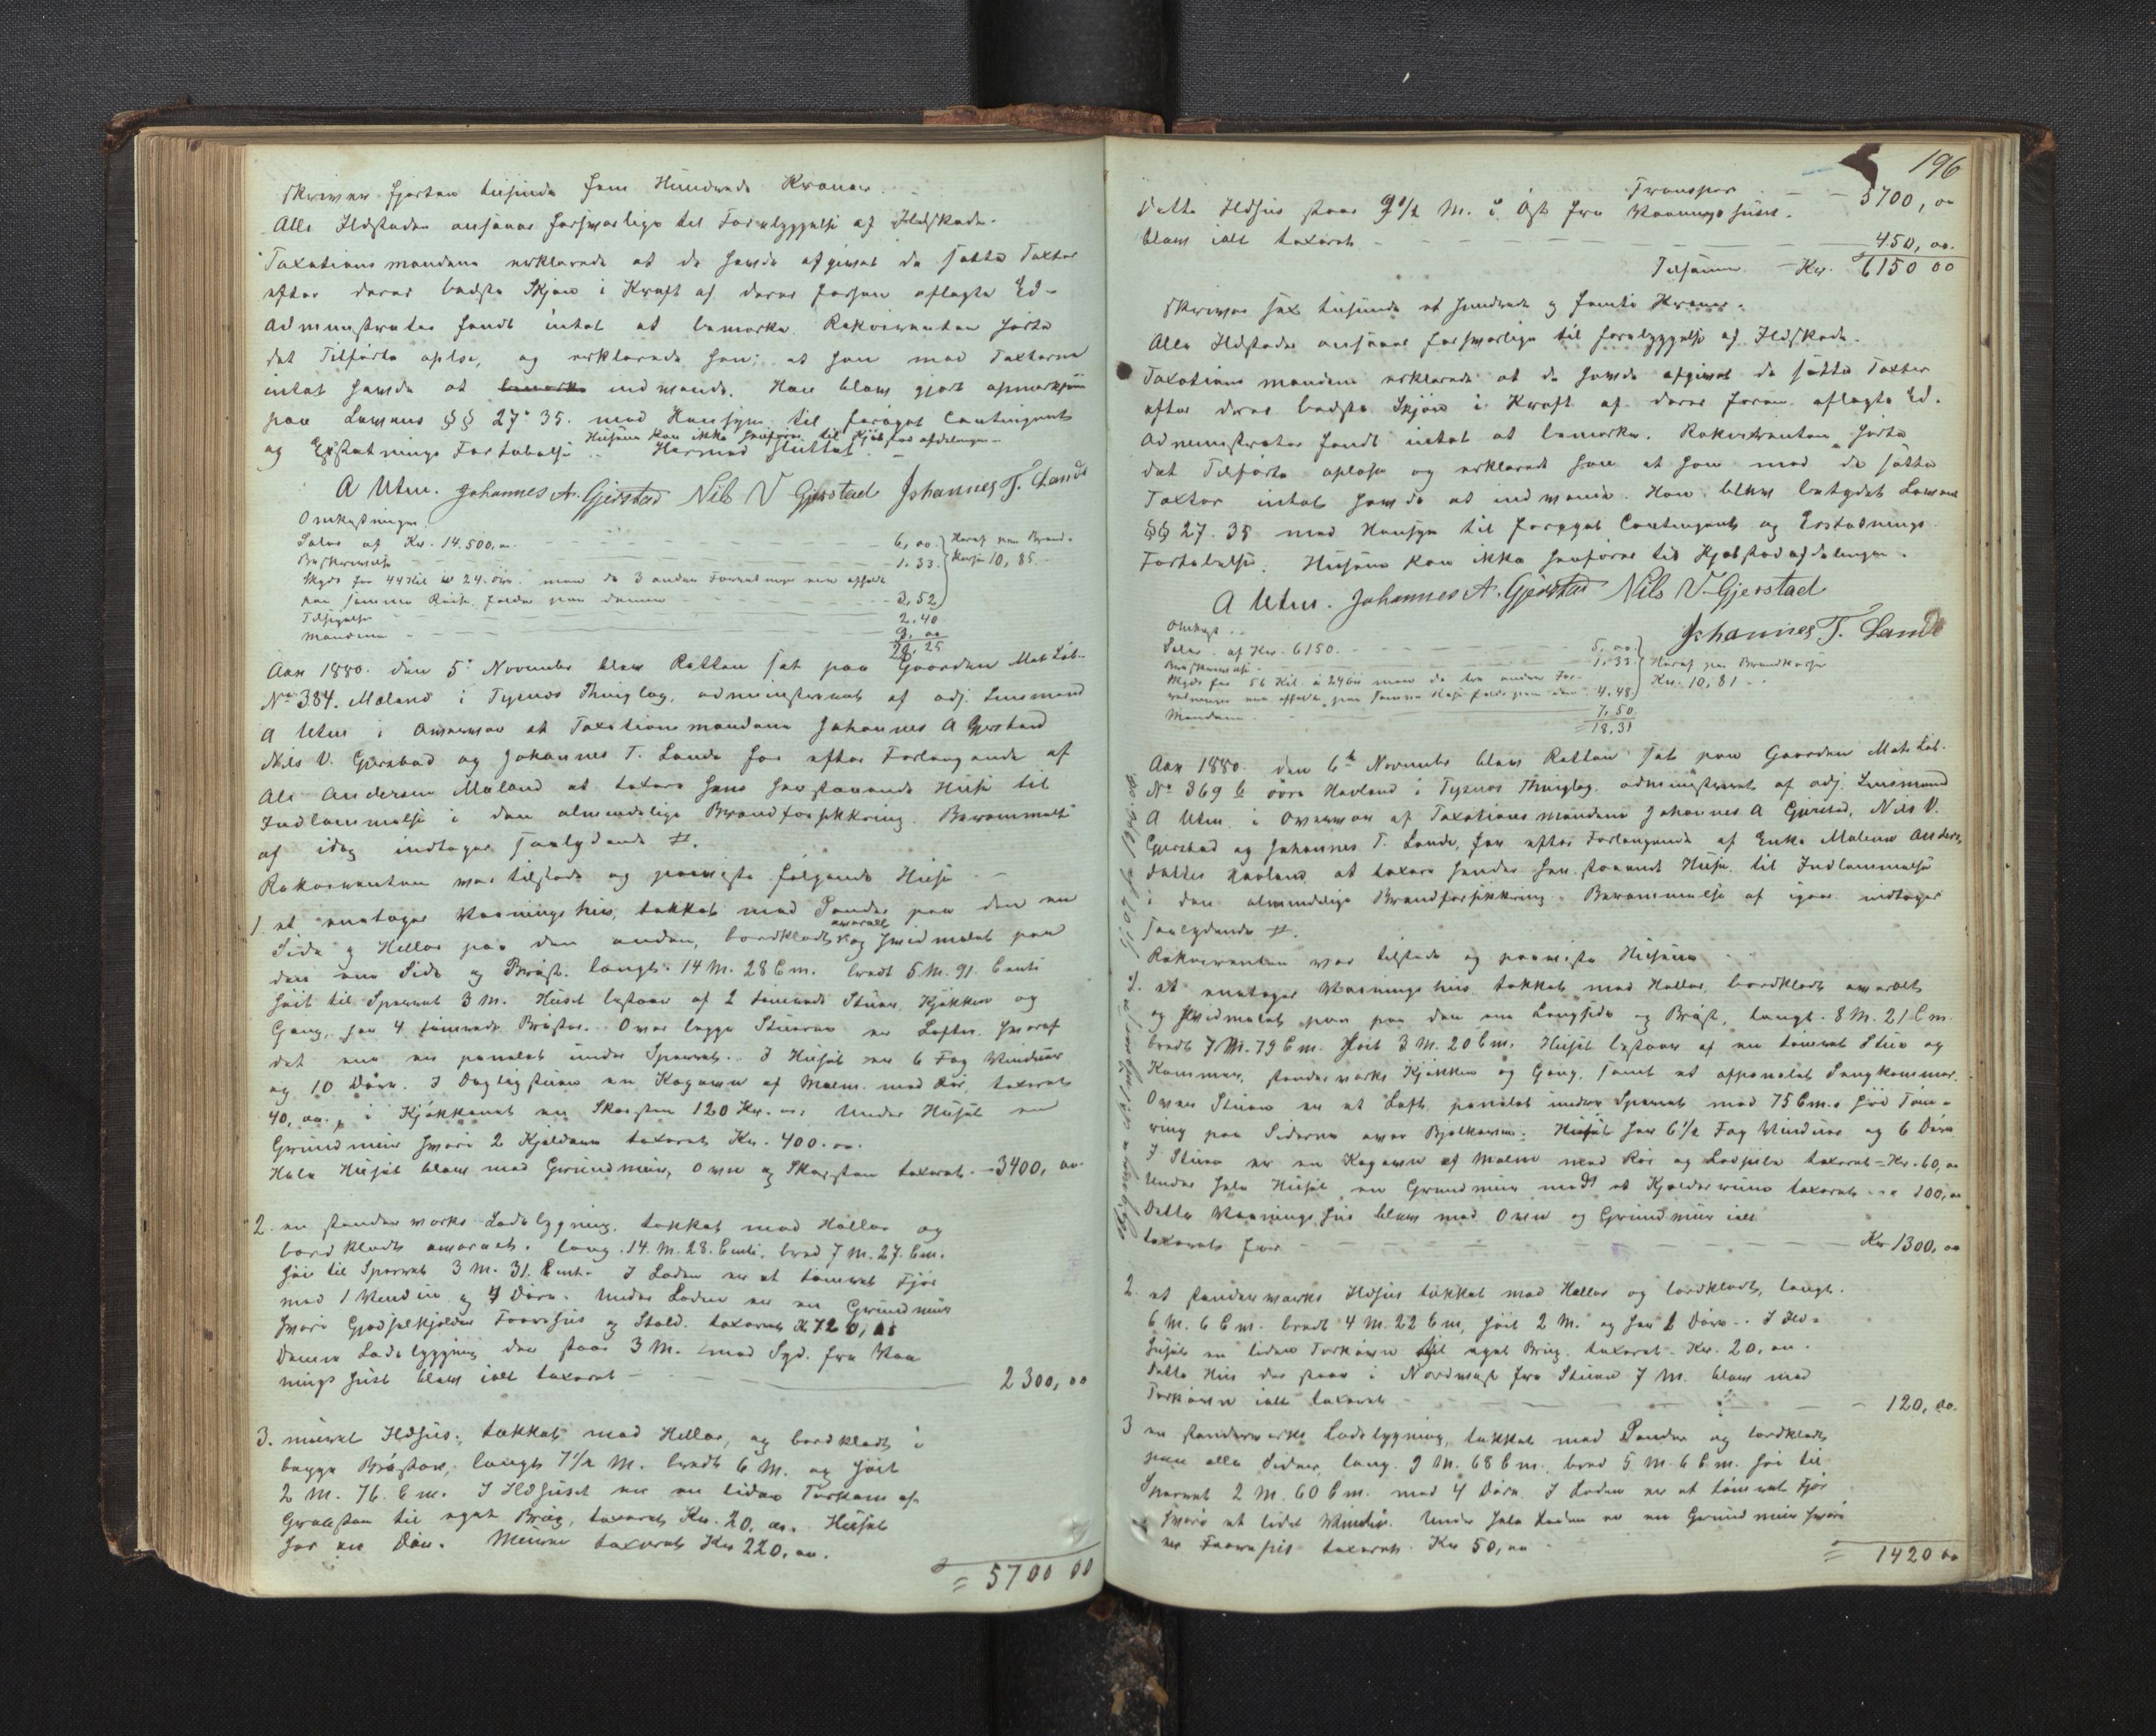 skriver fjorten tusinde fem Hundrede Kroner.
Alle Ildsteder ansaaes forsvarlige til Forebyggelse af Ildskade.
Taxationsmændene erklærede at de havde afgivet de satte Taxter
efter deres bedste Skjøn i Kraft af deres forhen aflagte Ed-
Administrator fandt intet at bemærke. Rekvirenten hørte
det Tilførte oplæse, og erklærede han; at han mod Taxterne
intet havde at bemærke indvende. Han blev gjort opmærksom
paa Lovens §§ 27. 35. med Hensyn til forøget Contingent
og Erstatnings Fortabelse. Husene kan ikke henføres til Kjøbstad afdelingen.
Hermed sluttet.
A Utne. Johannes A. Gjerstad Nils V Gjerstad Johannes T. Lande
Omkostninger.
Salær af Kr. 14.500,00 6,00 Heraf paa Brand-
Beskrivelse 1.33. kasse 10,85
Skyds for 44 Kil à 24 øre. naar de 3 andre Forretninger ere afholdt
paa samme Reise falder paa denne 3,52
Tilsigelse 2.40
Mændene 9,00
22,25
Aar 1880. den 5te November blev Retten sat paa Gaarden Mat Løb-
No 384. Maland i Tysnes Thinglag, administreret af adj. Lensmand
A Utne i Overvær af Taxationsmændene Johannes A Gjerstad
Nils V. Gjerstad og Johannes T. Lande for efter Forlangende af
Ole Andersen Maland at taxere hans herstaaende Huse til
Indlemmelse i den almindelige Brandforsikkring. Berammelse
af idag indtages saalydende #.
Rekvirenten var tilstede og paaviste følgende Huse
1. et enetages Vaaningshus, tækket med Pander paa den ene
Side og Heller paa den anden, bordklædt overalt og hvidmalet paa
den ene Side og Brøst. langt. 14 M. 28 Cm. bredt 5 M. 91. Centi
høit til Sperret 3 M. Huset bestaar af 2 tømrede Stuer, Kjøkken og
Gang, har 4 tømrede Brøster. Over begge Stuerne er Lofter hvoraf
det ene er panelet under Sperret. I Huset er 6 Fag Vinduer
og 10 Døre. I Dagligstuen en Kogeovn af Malm med Rør, taxeret
40,00, i Kjøkkenet en Skorsten 120 Kr. Under Huset en
Grundmuur hvori 2 Kjældere taxeret Kr. 400.00
Hele Huset blev med Grundmuur, Ovn og Skorsten taxeret 3400,00
2. en stenderværks Ladebygning, tækket med Heller og
bordklædt overalt. lang. 14. M. 28. Centi. bred 7 M. 27. Cm.
høi til Sperret 3 M. 31. Cent. I Laden er et tømret Fjøs
med 1 Vindue og 4 Døre. Under Laden er en Grundmuur
hvori Gjødselkjelder Faarehus og Stald. taxeret K 720,00
Denne Ladebygging der staar 3 M. mod Syd. fra Vaa
nings huset blev ialt taxeret 2300,00
3. muret Ildhus, tækket med Heller, og bordklædt i
begge Brøster, langt 7 1/2 M. bredt 6 M. og høit
2 M. 76. Cm. I Ildhuset er en liden Tørkeovn af
Graasten til eget Brug, taxeret Kr. 20,00. Huset
har en Dør. Murene taxeret Kr 220,00.
= 5700 00
196
Transport 5700,00
Dette Ildhus staar 9 1/2 M. i Øst fra Vaaningshuset.
blev ialt taxeret 450,00.
Tilsammen Kr. 6150 00
skriver sex tusinde et hundrede og femti Kroner.
Alle Ildsteder ansaaes forsvarlige til forebyggelse af Ildskade.
Taxationsmændene erklærede at de havde afgivet de satte Taxter
efter deres bedste Skjøn i Kraft af deres forhen aflagte Ed.
Administrator fandt intet at bemærke. Rekvirenten hørte
det Tilførte oplæse og erklærede han at han mod de satte
Taxter intet havde at indvende. Han blev betydet Lovens
§§ 27. 35 med Hensyn til forøget Contingent og Erstatnings
Fortabelse. Husene kan ikke henføres til Kjøbstadafdelingen.
A Utne. Johannes A. Gjerstad Nils V. Gjerstad
Johannes T. Lande
Omkost.
Salær. af Kr. 6150. 5,00
Beskrivelse 1,33 Heraf paa Brandkassen
Skyds for 56 Kil. à 24 øre naar de tre andre For- Kr. 10,81
retninger ere afholdt paa samme Reise falde paa den 4,48
Mændene 7,50
= 18,31
Aar 1880. den 6te November blev Retten sat paa Gaarden Mat. Løb.
No 369 b øvre Hovland i Tysnes Thinglag. administreret af adj. Lensmand
A Utne i Overvær af Taxationsmændene Johannes A Gjerstad, Nils V.
Gjerstad og Johannes T. Lande, for efter Forlangende af Enke Malene Anders-
datter Hovland at taxere hendes her staaende Huse til Indlemmelse
i den almindelige Brandforsikkring. Berammelse af igaar indtages
saalydende #.
Rekvirenten var tilstede og paaviste Husene
1. et enetages Vaaningshus tækket med Heller, bordklædt overalt
og hvidmalet paa den ene Langside og Brøst, langt. 8 M. 21 Cm.
bredt 7 M. 79 Cm. høit 3 M. 20 Cm. Huset bestaar af en tømret Stue og
Kammer, stenderværks Kjøkken og Gang, samt et afpanelet Sengkammer.
Over Stuen er et Loft panelet under Sperret med 75 Cm. høi Tøm-
ring paa Siderne over Bjelkerne. Huset har 6 1/2 Fag Vinduer og 6 Døre
I Stuen er en Kogeovn af Malm med Rør og taxeret Kr. 60,00
Under hele Huset en Grundmuur med et Kjælderrum taxeret 100,00
Dette Vaaningshus blev med Ovn og Grundmuur ialt
taxeret for Kr 1300,00
2. et stenderværks Ildhus tækket med Heller og bordklædt, langt.
6 M. 6 Cm. bredt 4 M. 22 Cm, høit 2 M. og har 2 Døre. I Ild-
huset en liden Tørkeovn til eget Brug. taxeret Kr. 20,00.
Dette Hus der staar i Nordvest fra Stuen 7 M. blev med
Tørkeovn ialt taxeret 120,00.
3 en stenderværks Ladebygning, tækket med Pander og bordklædt
paa alle Sider, lang. 9 M. 68 Cm. bred 5 M. 6 Cm. høi til
Sperret 2 M. 60 Cm. med 4 Døre. I Laden er et tømret Fjøs
hvori et lidet Vindue. Under hele Laden er en Grundmuur hvori
er Faarehus taxeret. Kr 50,00
= 1420 00